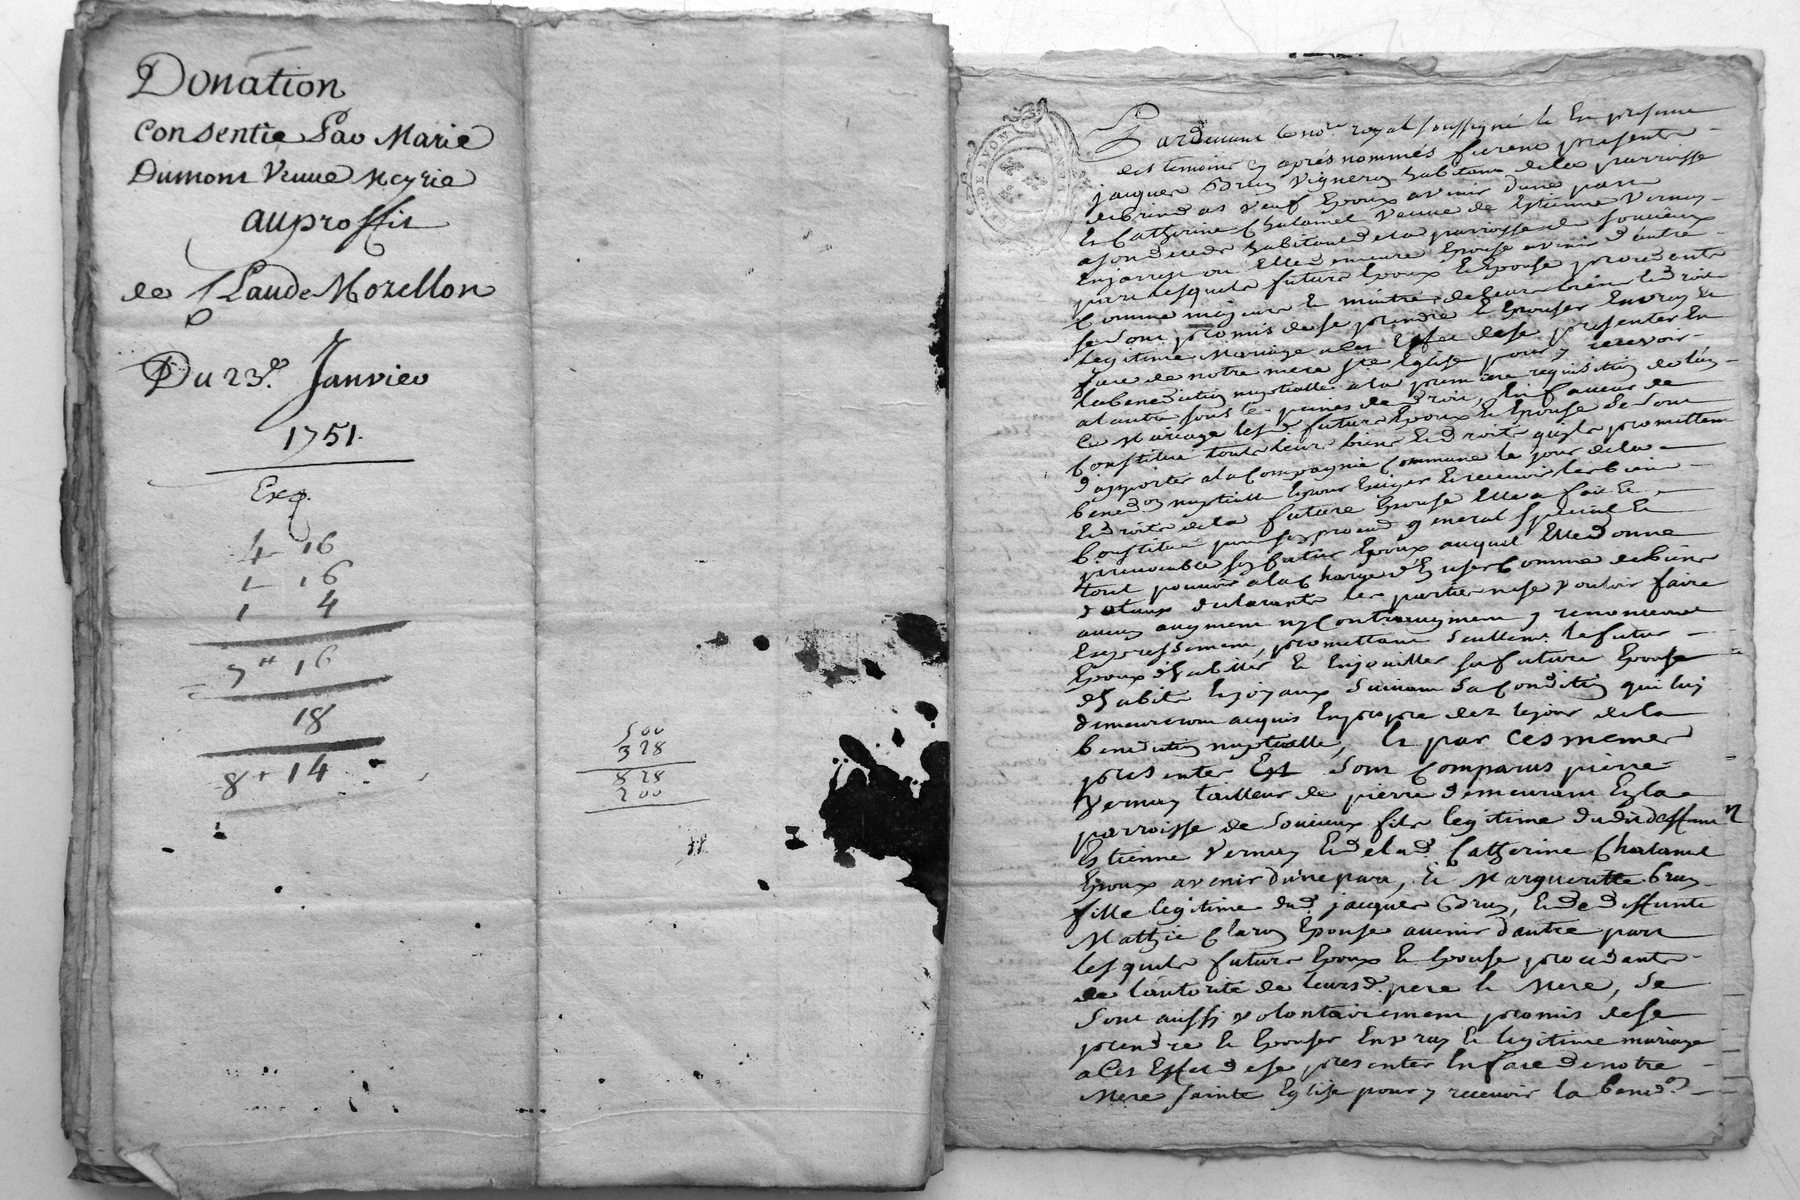 Donation
Consentie Par Marie
Dumont Veuve Meyrie
au proffit
de Claude Mozellon
Du 23.e Janvier
1751.
Exp.
4 16
1 16
1 4
7 16
18
8 14
500
328
828
200
Pardevant le no.re royal soussigné & En presence
des temoins cy aprés nommés furent presents
jacques Brun vigneron habitant de la parroisse
de brindas veuf Epoux avenir d'une part
Et Catherine Chalamel veuve de Estienne Vernay
a son deceds habitante de la parroisse de Soucieux
Enjarrest ou Elle demeure Epouse avenir d'autre
part lesquels futurs Epoux & Epouse procedants
Comme majeurs & maitres de leurs biens & droits
se sont promis de se prendre & Epouser En vray &
legitime Mariage a Ces Effet de se presenter En
face de notre mere ste Eglise pour y recevoir
la benediction nuptialle a la premiere requisition de l'un
a l'autre sous les peines de droit, En faveur de
Ce Mariage les d. futurs Epoux & Epouse se sont
Constitué touts leurs biens & droits qu'ils promettent
d'apporter a la Compagnie Commune le jour de la
bened.on nuptialle & pour Exiger & recevoir les biens
& droits de la future Epouse Elle a fait &
Constitué pour son procu.r general special &
jrrevocable son futur Epoux auquel Elle donne
tout pouvoir a la Charge d'En user Comme de biens
dotaux declarants les parties ne se vouloir faire
aucun augment ny Contreaugment y renonceant
Expressement, promettant seullem.t le futur
Epoux d'habiller & Enjouailler sa future Epouse
d'habits & joyaux suivant sa Condition qui luy
demeureront acquis En propre dez le jour de la
benediction nuptialle, & par ces memes
presentes Est Sont Comparus pierre
Vernay tailleur de pierre demeurant En la
parroisse de Soucieux fils legitime dudit deffunt
Estienne Vernay & de lad. Catherine Chalamel
Epoux avenir d'une part, & Margueritte brun
fille legitime dud. jacques Brun, & de deffunte
Mathie Claron Epouse avenir d'autre part
lesquels futurs Epoux & Epouse procedants
de l'autorité de leursd. pere & Mere, se
Sont aussi volontairement promis de se
prendre & Epouser En vray & legitime mariage
a Ces Effet de se presenter En face de notre
Mere sainte Eglise pour y recevoir la bened.on